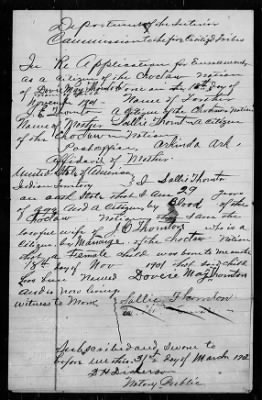 Department of the Interior
Commission to the five Civilized Tribes
In Re Application for Enrollment
as a citizen of the Choctaw Nation
of Dovie May Thornton on the 18th day of
November 1901 Name of Father
J. E. Thornton a Citizen of the Choctaw Nation
Name of Mother Sallie Thornton a Citizen
of the Choctaw Nation
Postoffice, Arkinda Ark,
Affidavit of Mother.
United States of America
Indian Territory I Sallie Thornton
on oath State that I Am 29 years
of age and a Citizen by Blood of the
Choctaw Nation that I am the
lawful wife of J E Thornton who is a
Citizen by Marriage of the Choctaw Nation
that a Female child was born to me on the
18th day of Nov 1901 that said child
has been Named Dovie May Thornton
and is now living
witness to Mark Sallie Thornton
Subscribed and Sworn to
before me this day of March 190
Notary Public